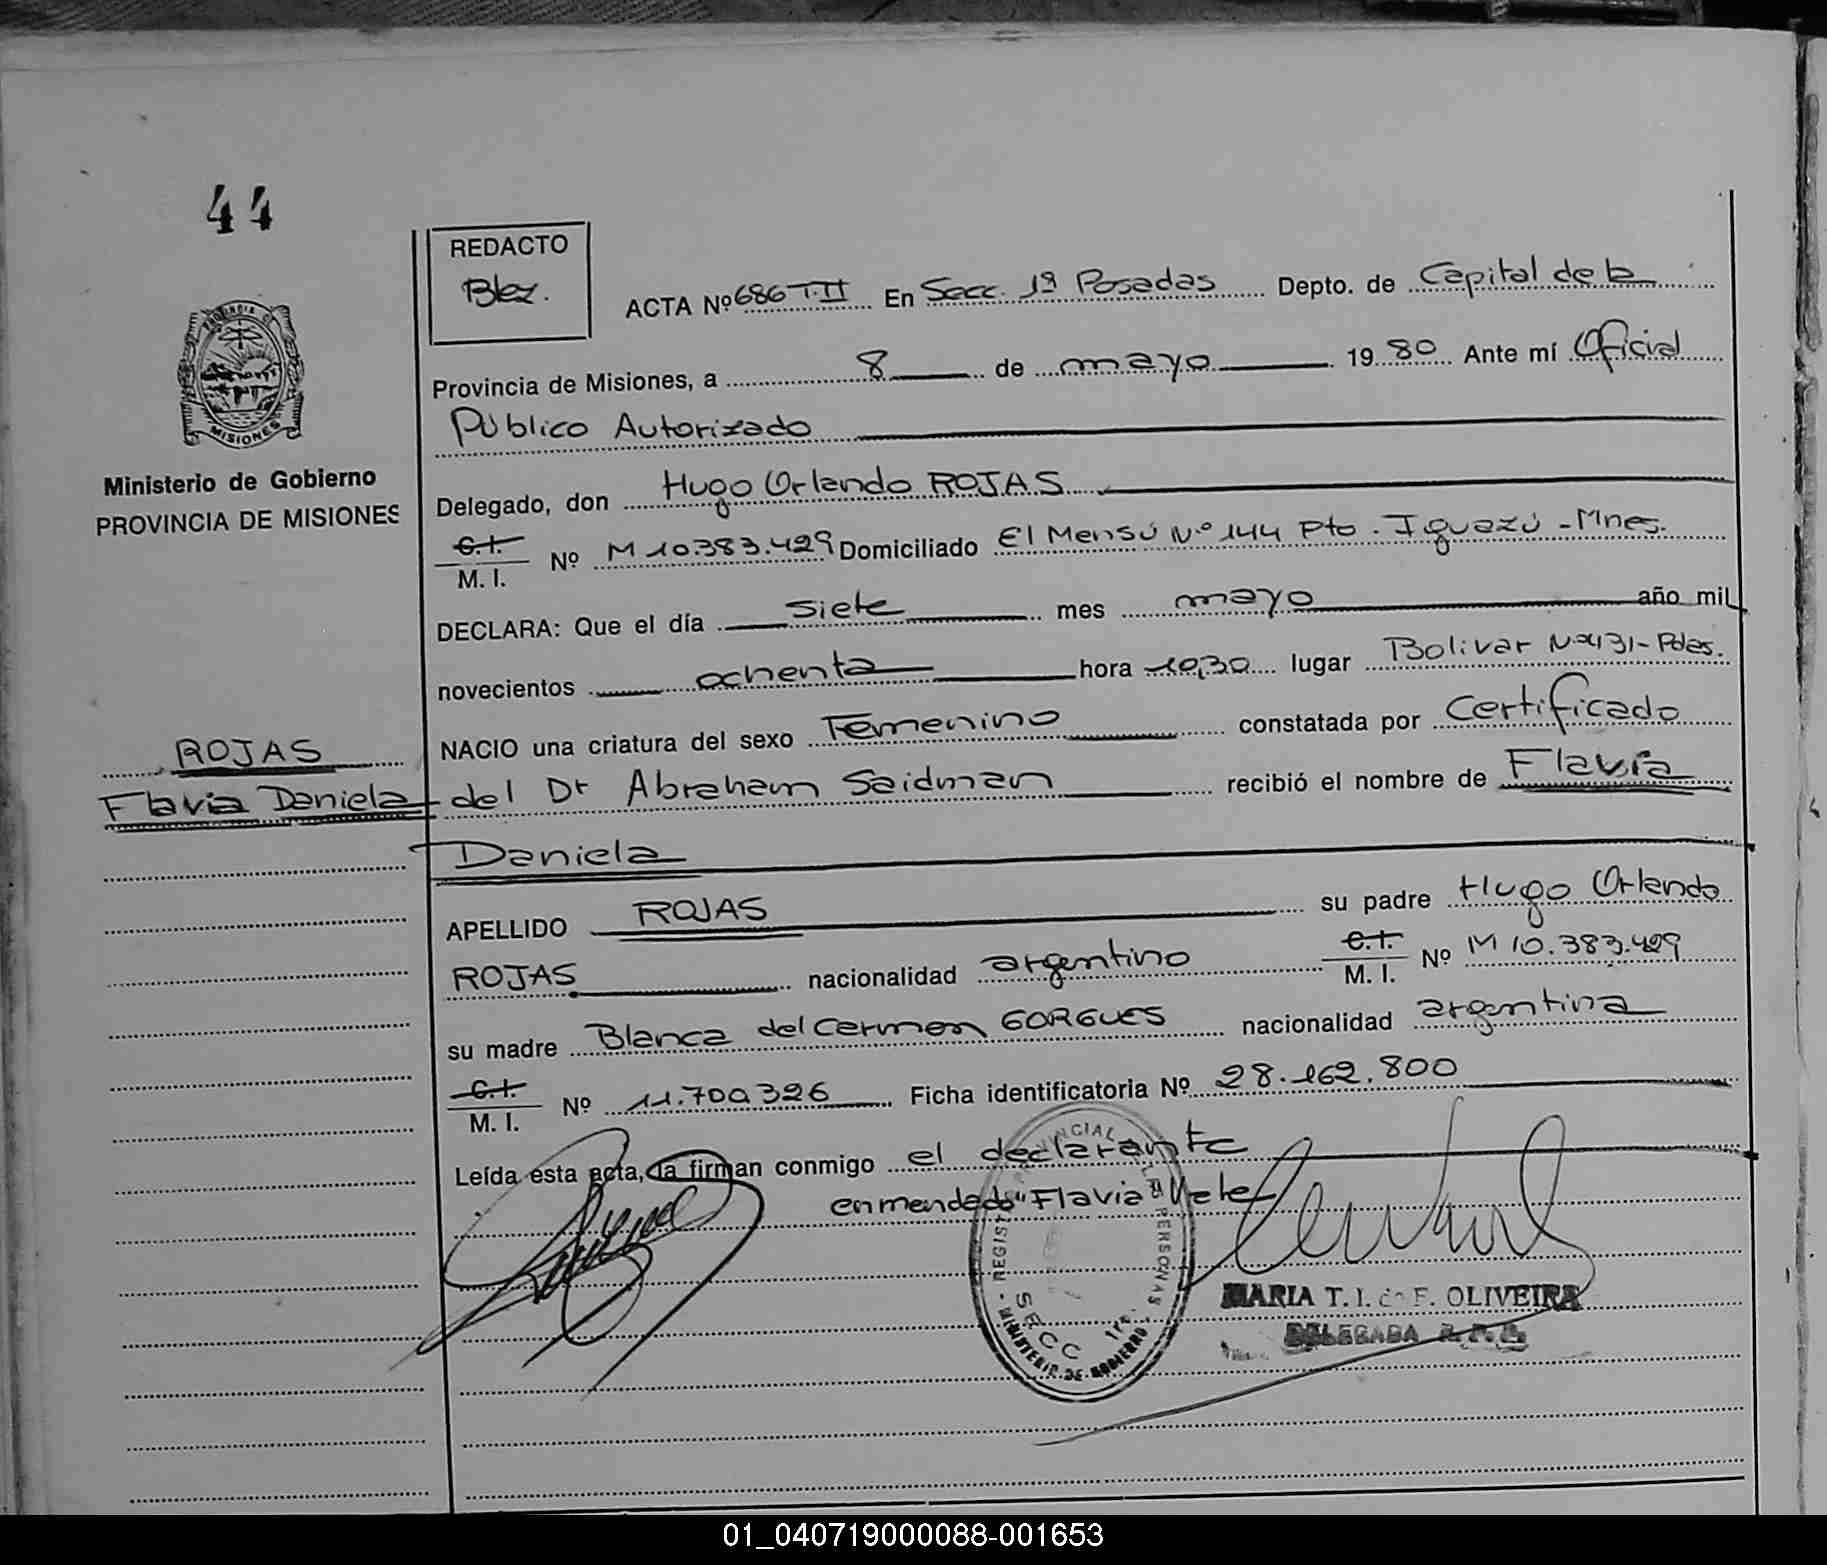 44
REDACTO
Blez.
ACTA Nº 686 T.II En Secc. 1ª Posadas Depto. de Capital de la
Provincia de Misiones, a 8 de mayo 19 80 Ante mí Oficial
Público Autorizado
Delegado, don Hugo Orlando ROJAS
C.I.
M. I. Nº M 10.383.429 Domiciliado El Mensú Nº 144 Pto. Iguazú - Mnes.
DECLARA: Que el día siete mes mayo año mil
novecientos ochenta hora 10,30 lugar Bolivar Nº 431 - Pdas.
NACIO una criatura del sexo Femenino constatada por Certificado
del Dr Abraham Saidman recibió el nombre de Flavia
Daniela
APELLIDO ROJAS su padre Hugo Orlando
ROJAS nacionalidad argentino C.I.
M. I. Nº M 10.383.429
su madre Blanca del Carmen GORGUES nacionalidad argentina
C.I.
M. I. Nº 11.700.326 Ficha identificatoria Nº 28.162.800
Leída esta acta, la firman conmigo el declarante
enmendado "Flavia" Vale
MARIA T. I. de F. OLIVEIRA
DELEGADA
REGIST PERSONAS
SECC 1ra
MINISTERIO DE GOBIERNO
PROVINCIA DE
MISIONES
Ministerio de Gobierno
PROVINCIA DE MISIONES
ROJAS
Flavia Daniela
01_040719000088-001653